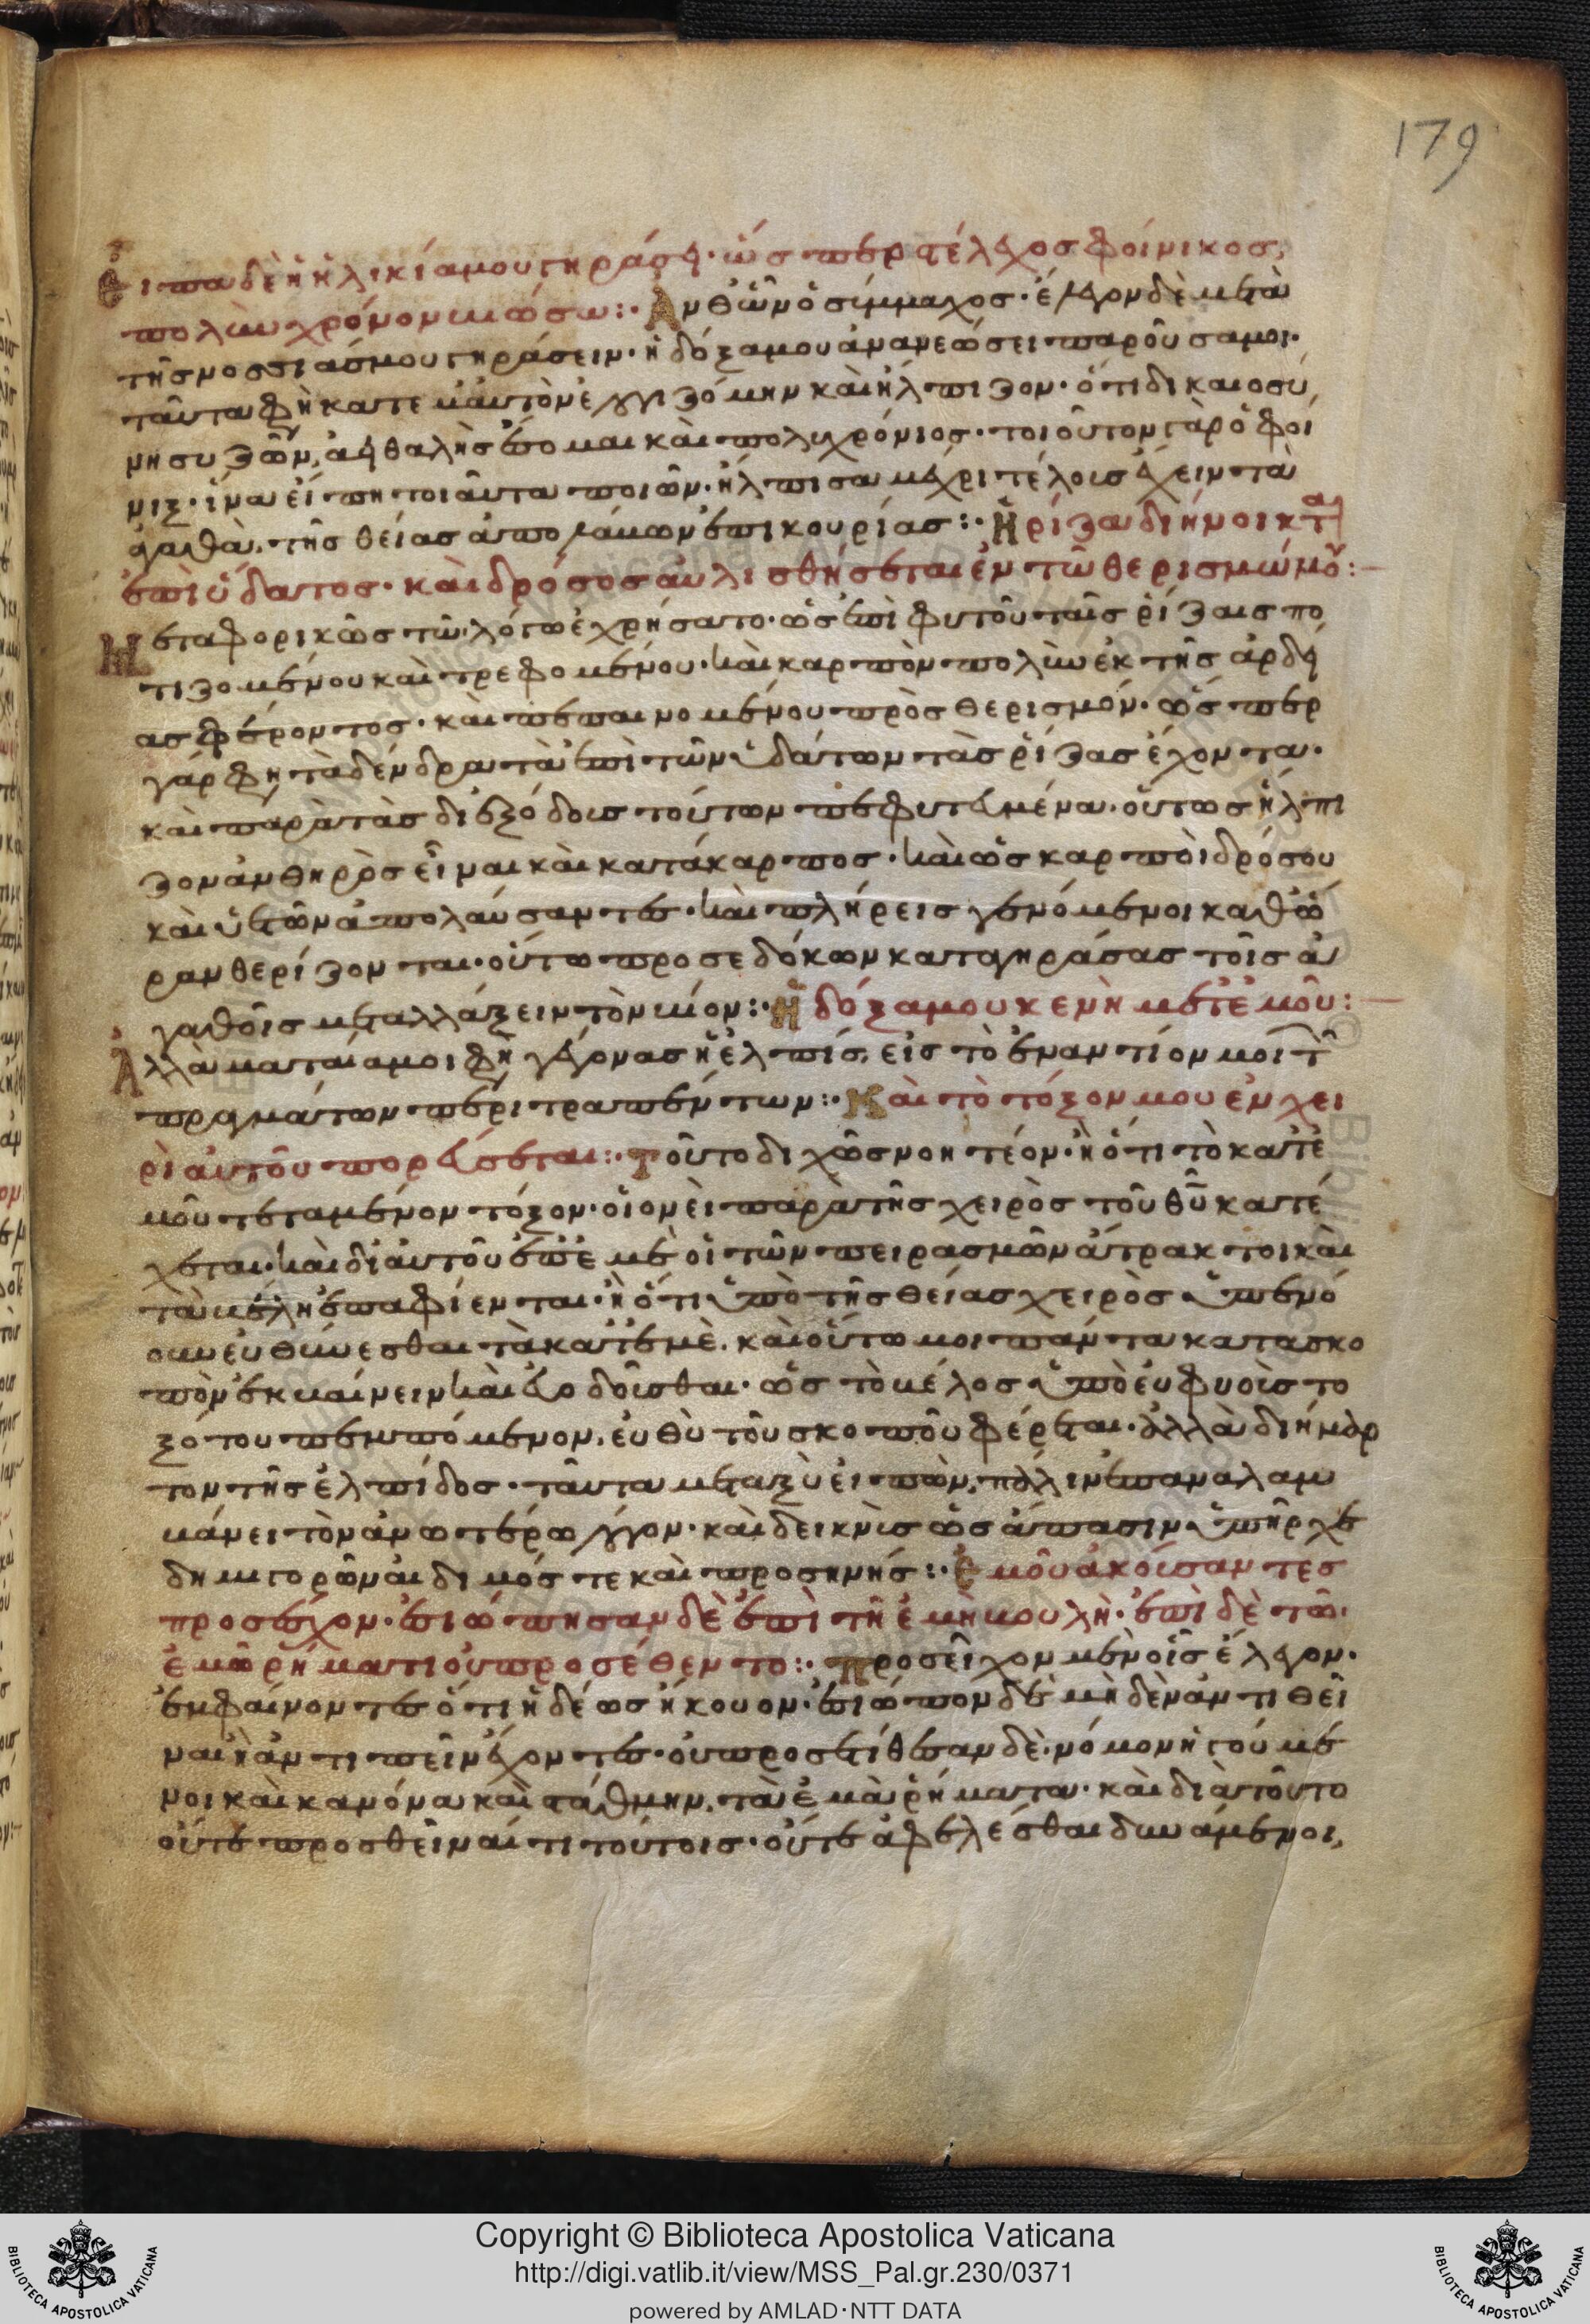 179
εἶπα δὲ ἡ ἡλικία μου γηράσει· ὥσπερ στέλεχος φοίνικος,
πολὺν χρόνον βιώσω:· Ἀνθ' ὧν ὁ σύμμαχος· ἔλεγον δὲ μετὰ
τῆς νοσσιᾶς μου γηράσειν· ἡ δόξα μου ἀνανεώσει παροῦσα μοι·
ταῦτα φη κατ' ἐμαυτὸν ἐλογιζόμην καὶ ἤλπιζον· ὅτι δικαιοσύ
νη συζῶν, ἀειθαλὴς ἔσομαι καὶ πολυχρόνιος· τοιοῦτον γὰρ ὁ φοί
νιξ· ἵνα εἴπη τοιαῦτα ποιῶν· ἤλπισα μέχρι τέλους ἔχειν τὰ
ἀγαθὰ, τῆς θείας ἀπολαύων ἐπικουρίας:· Ἡ ρίζα διήνοικται
ἐπὶ ὕδατος· καὶ δρόσος αὐλισθήσεται ἐν τῷ θερισμῷ μου:
Μεταφορικῶς τῷ λόγω ἐχρήσατο· ὡς ἐπὶ φυτοῦ ταῖς ῥίζαις πο
τιζομένου καὶ τρεφομένου· καὶ καρπὸν πολὺν ἐκ τῆς ἀρδεί
ας φέροντος· καὶ πεπαινομένου πρὸς θερισμόν· ὥσπερ
γάρ φη τὰ δένδρα τὰ ἐπὶ τῶν ὑδάτων τὰς ῥίζας ἔχοντα·
καὶ παρὰ τὰς διεξόδους τούτων πεφυτευμένα· οὕτως ἤλπι
ζον ἀνθηρὸς εἶναι καὶ κατάκαρπος· καὶ ὡς καρποὶ δρόσου
καὶ ὑετῶν ἀπολαύσαντες· καὶ πλήρεις γενόμενοι καθ' ὥ
ραν θερίζονται· οὕτω προσεδόκων καταγηράσας τοῖς ἀ
γαθοῖς μεταλλάξειν τὸν βίον:· Ἡ δόξα μου κενὴ μετ' ἐμοῦ:
Ἀλλὰ ματαία μοι φη γέγονας ἡ ἐλπίς, εἰς τὸ ἐναντίον μοι τῶν
πραγμάτων περιτραπέντων:· Καὶ τὸ τόξον μου ἐν χει
ρὶ αὐτοῦ πορεύσεται:· Τοῦτο διχῶς νοητέον· ἢ ὅτι τὸ κατ' ἐ
μοῦ τεταμένον τόξον· οἱονεὶ παρὰ τῆς χειρὸς τοῦ θυ κατέ
χεται· καὶ δι' αὐτοῦ ἐπ' ἐμὲ οἱ τῶν πειρασμῶν ἄτρακτοι καὶ
τὰ βέλη ἐπαφίενται· ἢ ὅτι ὑπὸ τῆς θείας χειρὸς ὑπενό
ουν εὐθύνεσθαι τὰ κατ' ἐμὲ· καὶ οὕτω μοι πάντα κατασκο
πὸν ἐκβαίνειν καὶ εὐοδοῦσθαι· ὡς τὸ βέλος ὑπὸ εὐφυοῦς το
ξότου πεμπόμενον, εὐθὺ τοῦ σκοποῦ φέρεται· ἀλλὰ διήμαρ
τον τῆς ἐλπίδος· ταῦτα μεταξὺ εἰπὼν, πάλιν ἐπαναλαμ
βάνει τὸν ἀνωτέρω λόγον· καὶ δείκνυσ ὡς ἅπασιν ὑπῆρχε
δημηγορῶν αἰδιμός τε καὶ προσηνής:· Ἐμοῦ ἀκούσαντες
προσέσχον· ἐσιώπησαν δὲ ἐπὶ τῇ ἐμῇ βουλῇ· ἐπὶ δὲ τῷ
ἐμῷ ῥήματι οὐ προσέθεντο:· Προσεῖχον μὲν οἷς ἔλεγον·
ἐμφαίνοντες ὅτι ἡδέως ἤκουον· ἐσιώπον δὲ μηδὲν ἀντιθεῖ
ναι ἢ ἀντιπεῖν ἔχοντες· οὐ προσετίθεσαν δὲ· νόμον ἡγούμε
νοι καὶ κανόνα καὶ στάθμην, τὰ ἐμὰ ῥήματα· καὶ διὰ τοῦτο
οὔτε προσθεῖναί τι τούτοις· οὔτε ἀφελέσθαι δυνάμενοι,
Copyright © Biblioteca Apostolica Vaticana
http://digi.vatlib.it/view/MSS_Pal.gr.230/0371
powered by AMLAD·NTT DATA
BIBLIOTECA APOSTOLICA VATICANA
BIBLIOTECA APOSTOLICA VATICANA